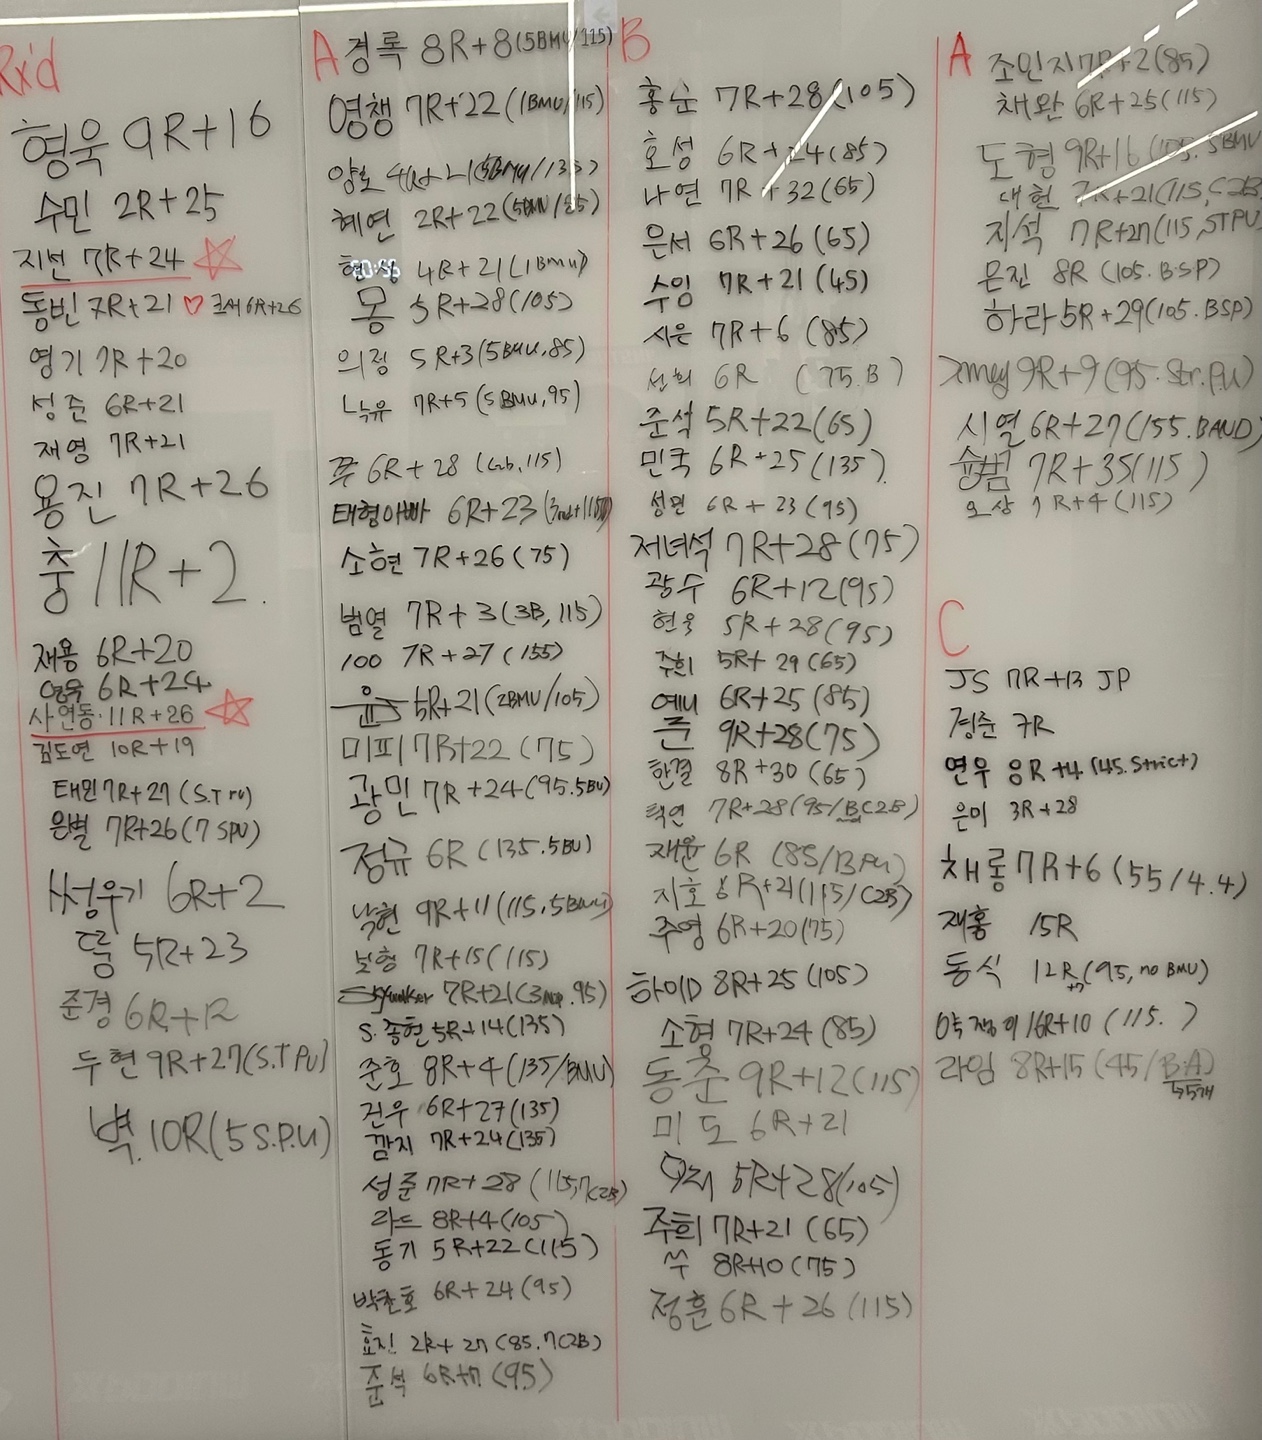 Rx'd
형욱 9R+16
수민 2R+25
지선 7R+24
동빈 7R+21 ♡ 6R+26
영기 7R+20
성준 6R+21
재영 7R+21
용진 7R+26
충 11R+2
재용 6R+20
6R+24
사연동 11R+26
김도연 10R+19
태민 7R+27
은별 7R+26 (7 SPU)
6R+2
5R+23
준경 6R+12
두현 9R+27 (S.T PU)
벽 10R (5 S.P.U)
A
경록 8R+8 (5BMU/115)
영챙 7R+22 (1BMU/115)
(5BMU/135)
혜연 2R+22 (5BMU/85)
4R+21 (1BMU)
몽 5R+28 (105)
의정 5R+3 (5BMU, 85)
낙유 7R+5 (5BMU, 95)
쭈 6R+28
태형아빠 6R+23
소현 7R+26 (75)
범열 7R+3 (3B, 115)
100 7R+27 (155)
5R+21 (2BMU/105)
미피 7R+22 (75)
광민 7R+24 (95.5BU)
정규 6R (135.5BU)
낙현 9R+11 (115, 5BMU)
보형 7R+15 (115)
7R+21
S.종현 5R+14 (135)
준호 8R+4 (135/BMU)
건우 6R+27 (135)
깜지 7R+24 (135)
성준 7R+28 (115, 7C2B)
라드 8R+4 (105)
동기 5R+22 (115)
박찬호 6R+24 (95)
효진 2R+27 (85.7C2B)
준석 6R+17 (95)
B
홍순 7R+28 (105)
호성 6R+24 (85)
나연 7R+32 (65)
은서 6R+26 (65)
수임 7R+21 (45)
시은 7R+6 (85)
선희 6R (75.B)
준석 5R+22 (65)
민국 6R+25 (135)
성민 6R+23 (95)
저녀석 7R+28 (75)
광수 6R+12 (95)
현욱 5R+28 (95)
주희 5R+29 (65)
예니 6R+25 (85)
준 9R+28 (75)
한결 8R+30 (65)
탁연 7R+28 (95/BC2B)
재윤 6R (85/BPU)
지호 8R+21 (115/C2B)
주영 6R+20 (75)
하이D 8R+25 (105)
소형 7R+24 (85)
동준 9R+12 (115)
미도 6R+21
5R+28 (105)
주희 7R+21 (65)
쑤 8R+10 (75)
정훈 6R+26 (115)
A
조민지 7R+2 (85)
채완 6R+25 (115)
도형 9R+16 (105.5BMU
대현 7R+21 (115,C2B)
지석 7R+27 (115,STPU)
은진 8R (105.BSP)
하라 5R+29 (105.BSP)
9R+9 (95.Str.P.U)
시열 6R+27 (155.BAND)
승범 7R+35 (115)
오상 7R+4 (115)
C
JS 7R+13 JP
경준 7R
연우 8R+4 (45.Strict)
은미 3R+28
채롱 7R+6 (55/4.4)
재홍 15R
동식 12R+7 (95, no BMU)
16R+10 (115. )
라임 8R+15 (45/B.A)
↳5개